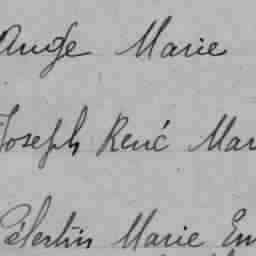 Ange Marie
Joseph René Mar
Célestin Marie Em